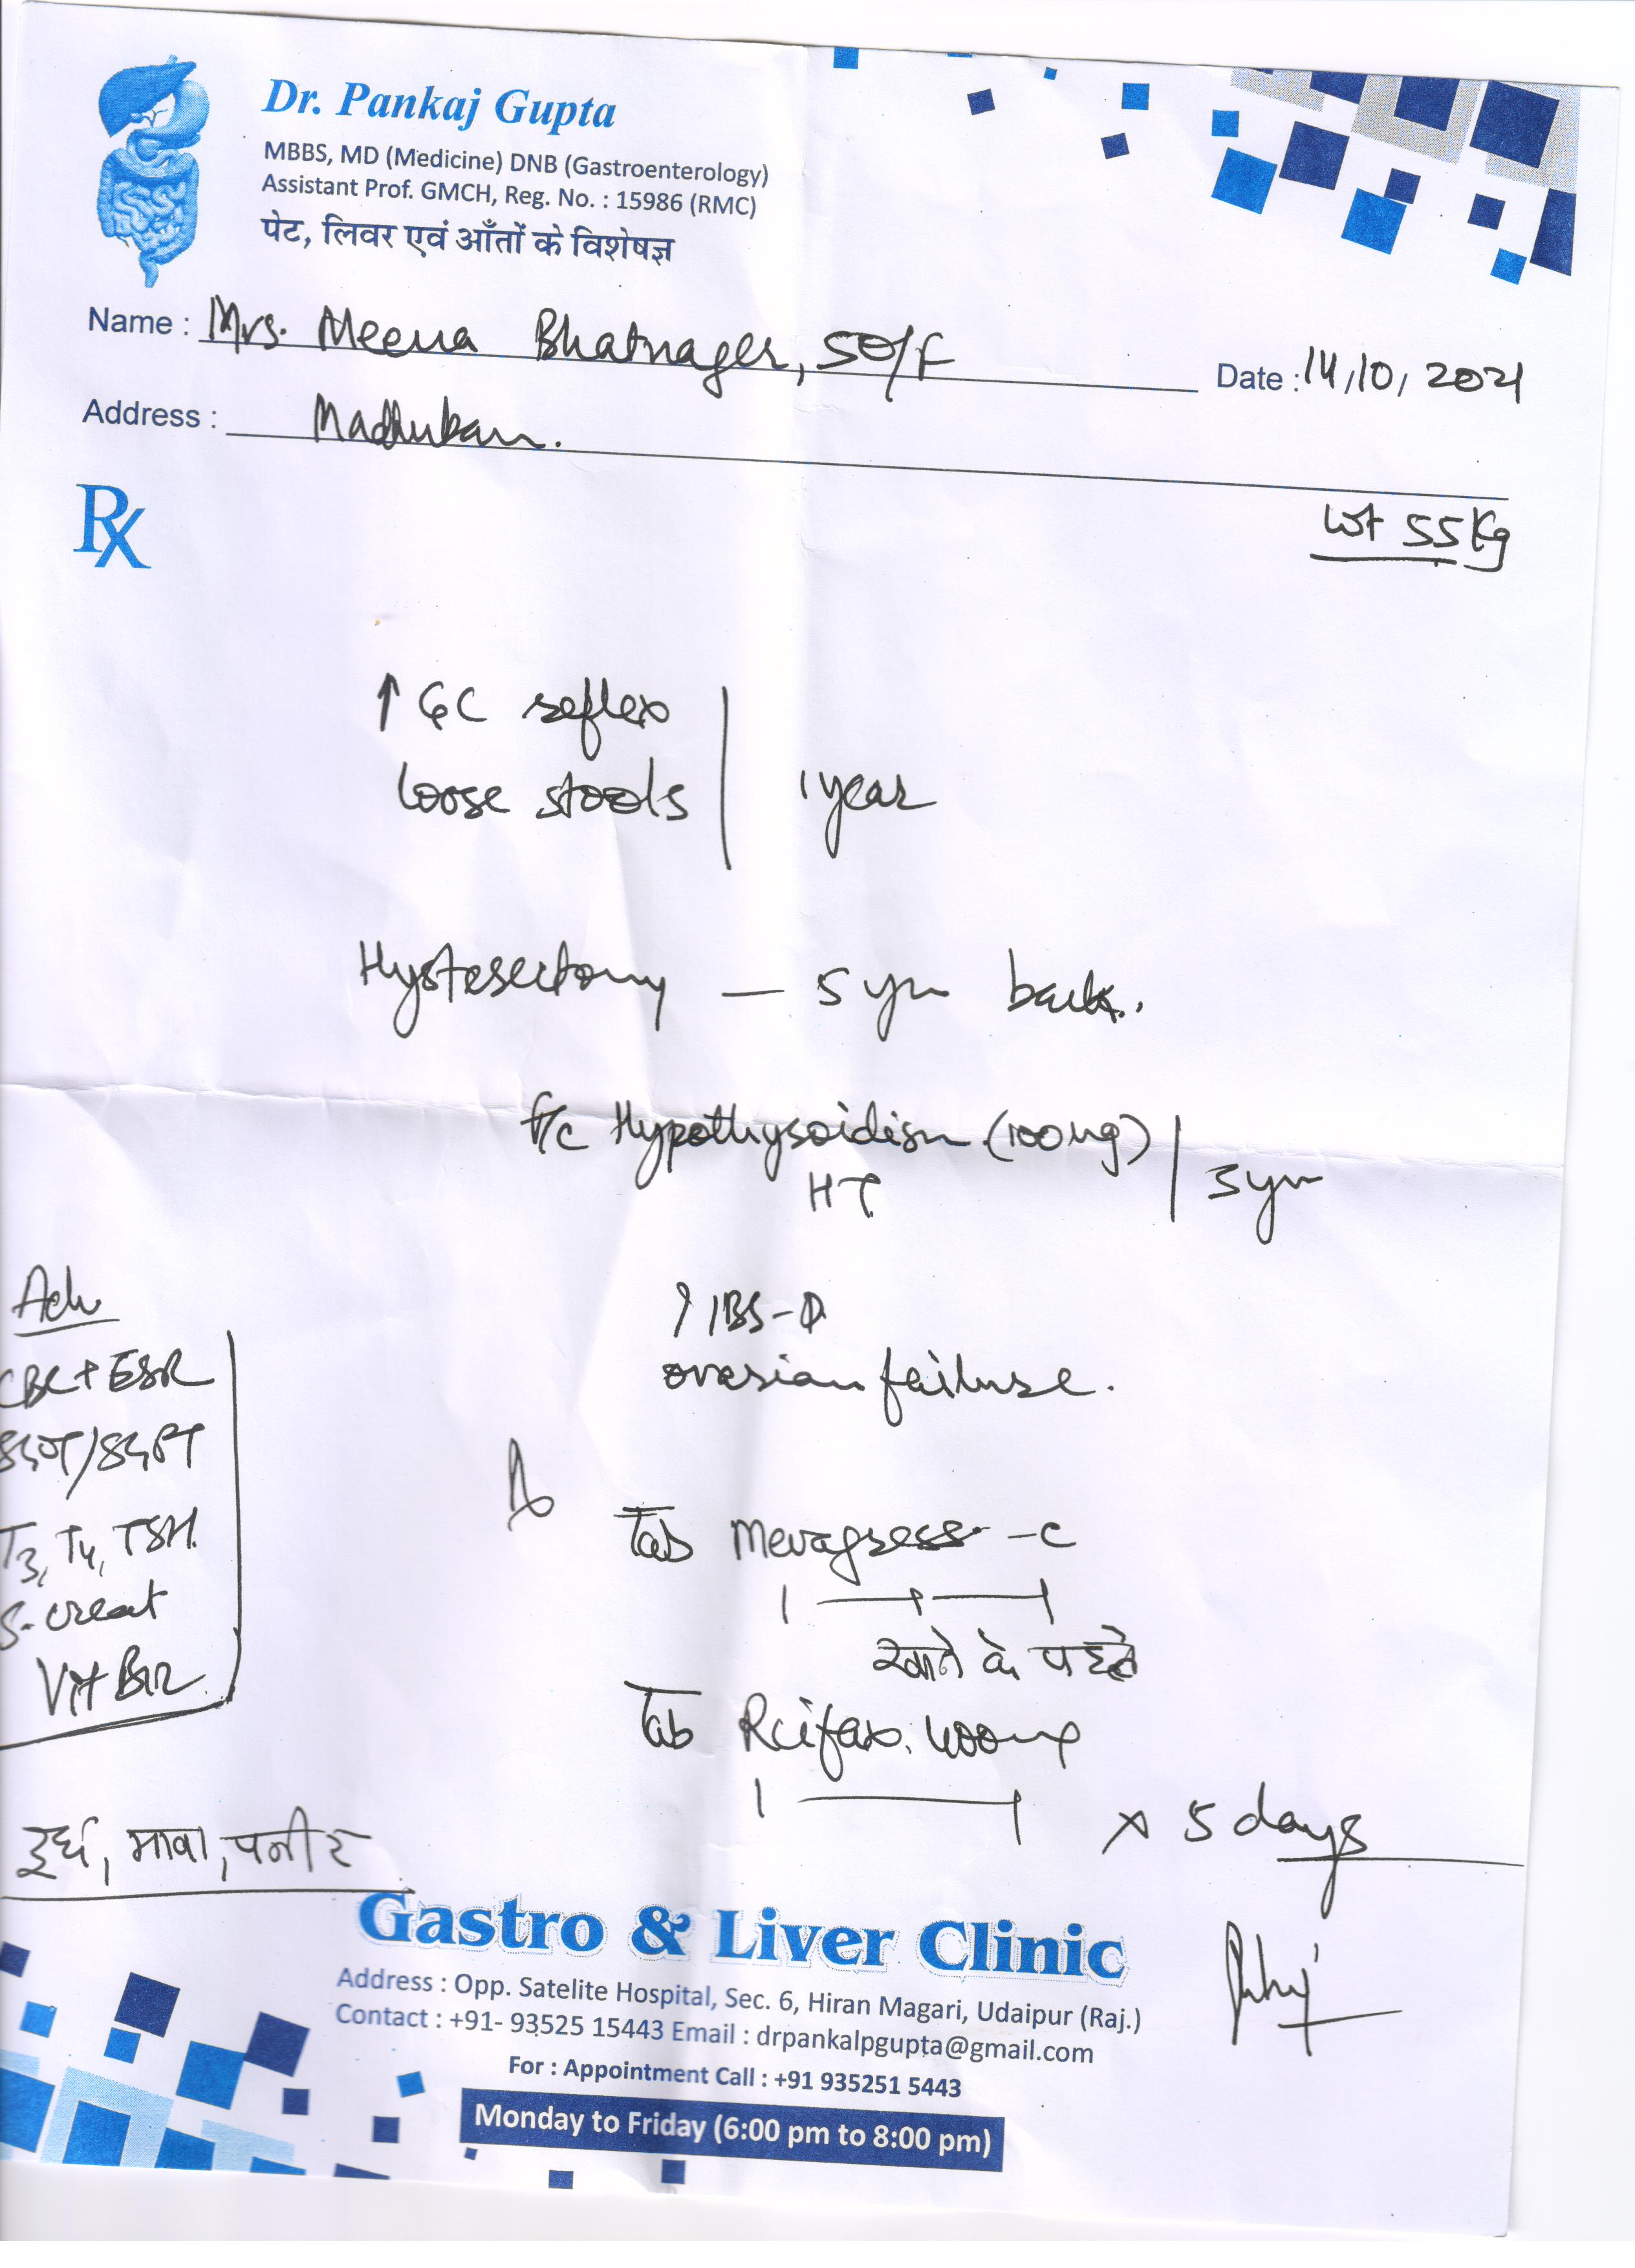 Dr. Pankaj Gupta
MBBS, MD (Medicine) DNB (Gastroenterology)
Assistant Prof. GMCH, Reg. No. : 15986 (RMC)
पेट, लिवर एवं आँतों के विशेषज्ञ
Name : Mrs. Meena Bhatnager, 50/F
Date : 14/10/2021
Address : Madhuban.
Rx
Wt 55 Kg
↑ GC reflex
loose stools | 1 year
Hysterectomy — 5 yrs back.
Hypothyroidism (100 ug)
HT | 3 yrs
Adv
CBC + ESR
SGOT/SGPT
T3, T4, TSH.
S. creat
Vit B12
? IBS-D
ovarian failure.
Tab -C
खाने के पहले
Tab 400mg
x 5 days
दूध, मावा, पनीर
Gastro & Liver Clinic
Address : Opp. Satelite Hospital, Sec. 6, Hiran Magari, Udaipur (Raj.)
Contact : +91- 93525 15443 Email : drpankalpgupta@gmail.com
For : Appointment Call : +91 935251 5443
Monday to Friday (6:00 pm to 8:00 pm)